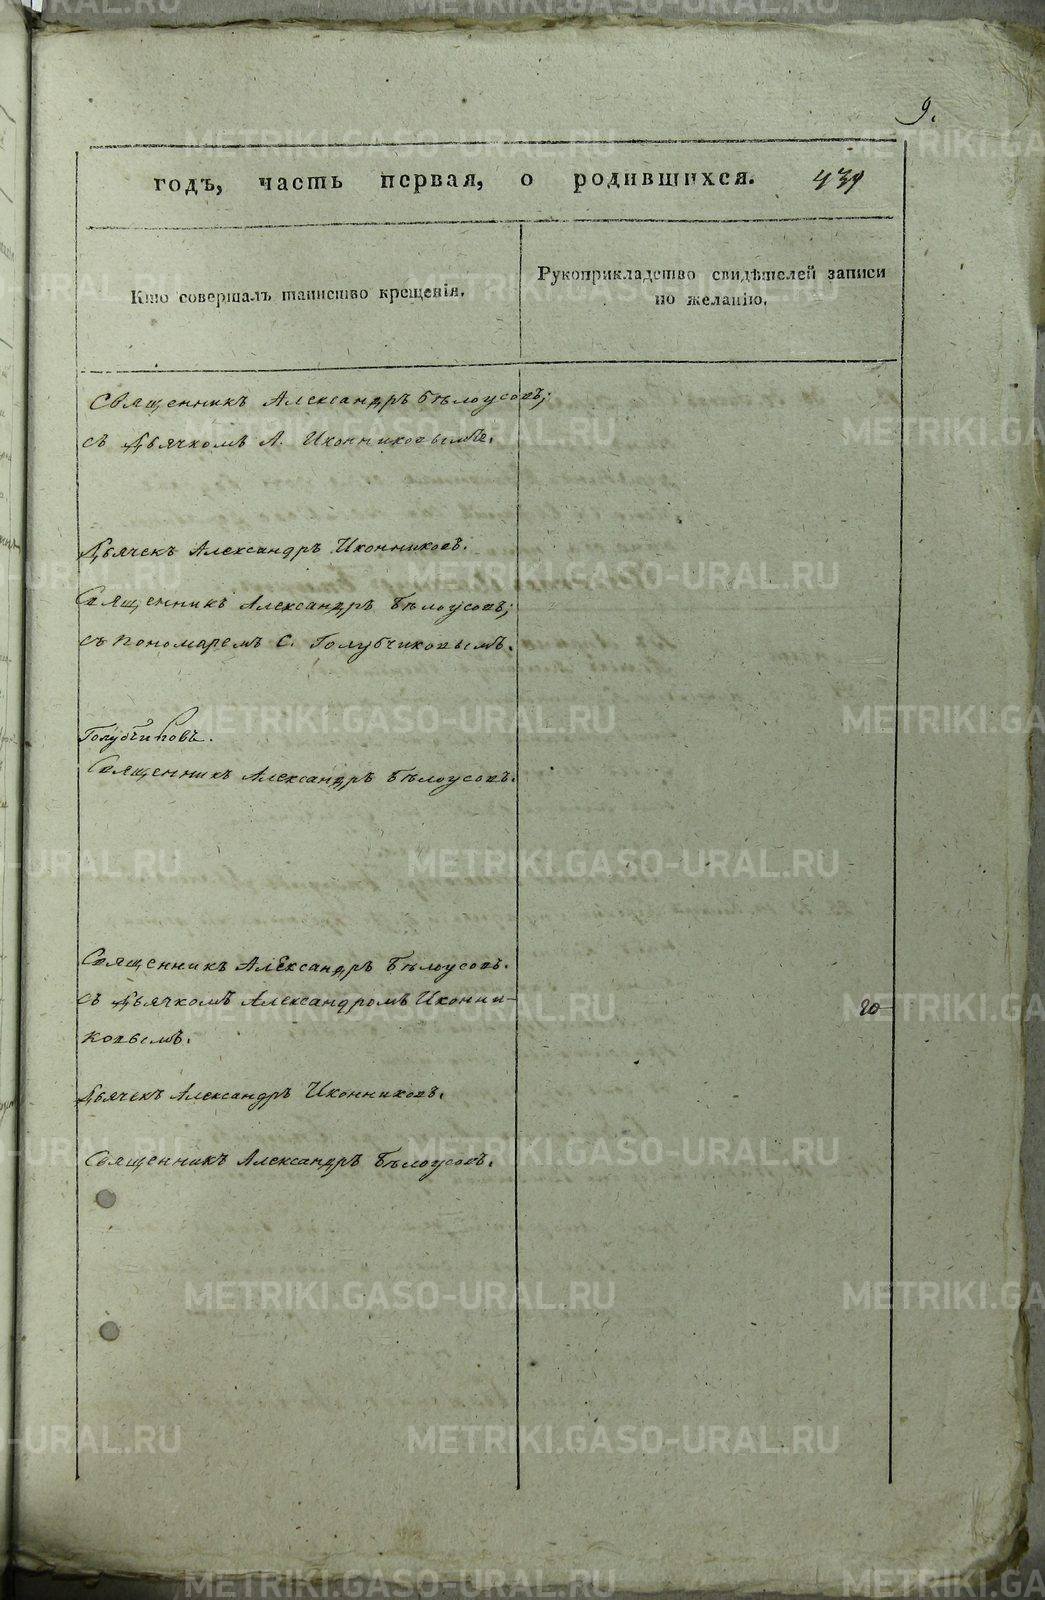 9.
годъ, часть первая, о родившихся. 439
Кто совершалъ таинство крещенія.
Рукоприкладство свидѣтелей записи
по желанію.
Священникъ Александръ Бѣлоусовъ;
съ дьячкомъ А. Иконниковымъ.
Дьячекъ Александръ Иконниковъ.
Священникъ Александръ Бѣлоусовъ;
съ пономаремъ С. Голубчиковымъ.
Голубчиковъ.
Священникъ Александръ Бѣлоусовъ.
Священникъ Александръ Бѣлоусовъ.
съ дьячкомъ Александромъ Иконни-
ковымъ.
20
Дьячекъ Александръ Иконниковъ.
Священникъ Александръ Бѣлоусовъ.
METRIKI.GASO-URAL.RU